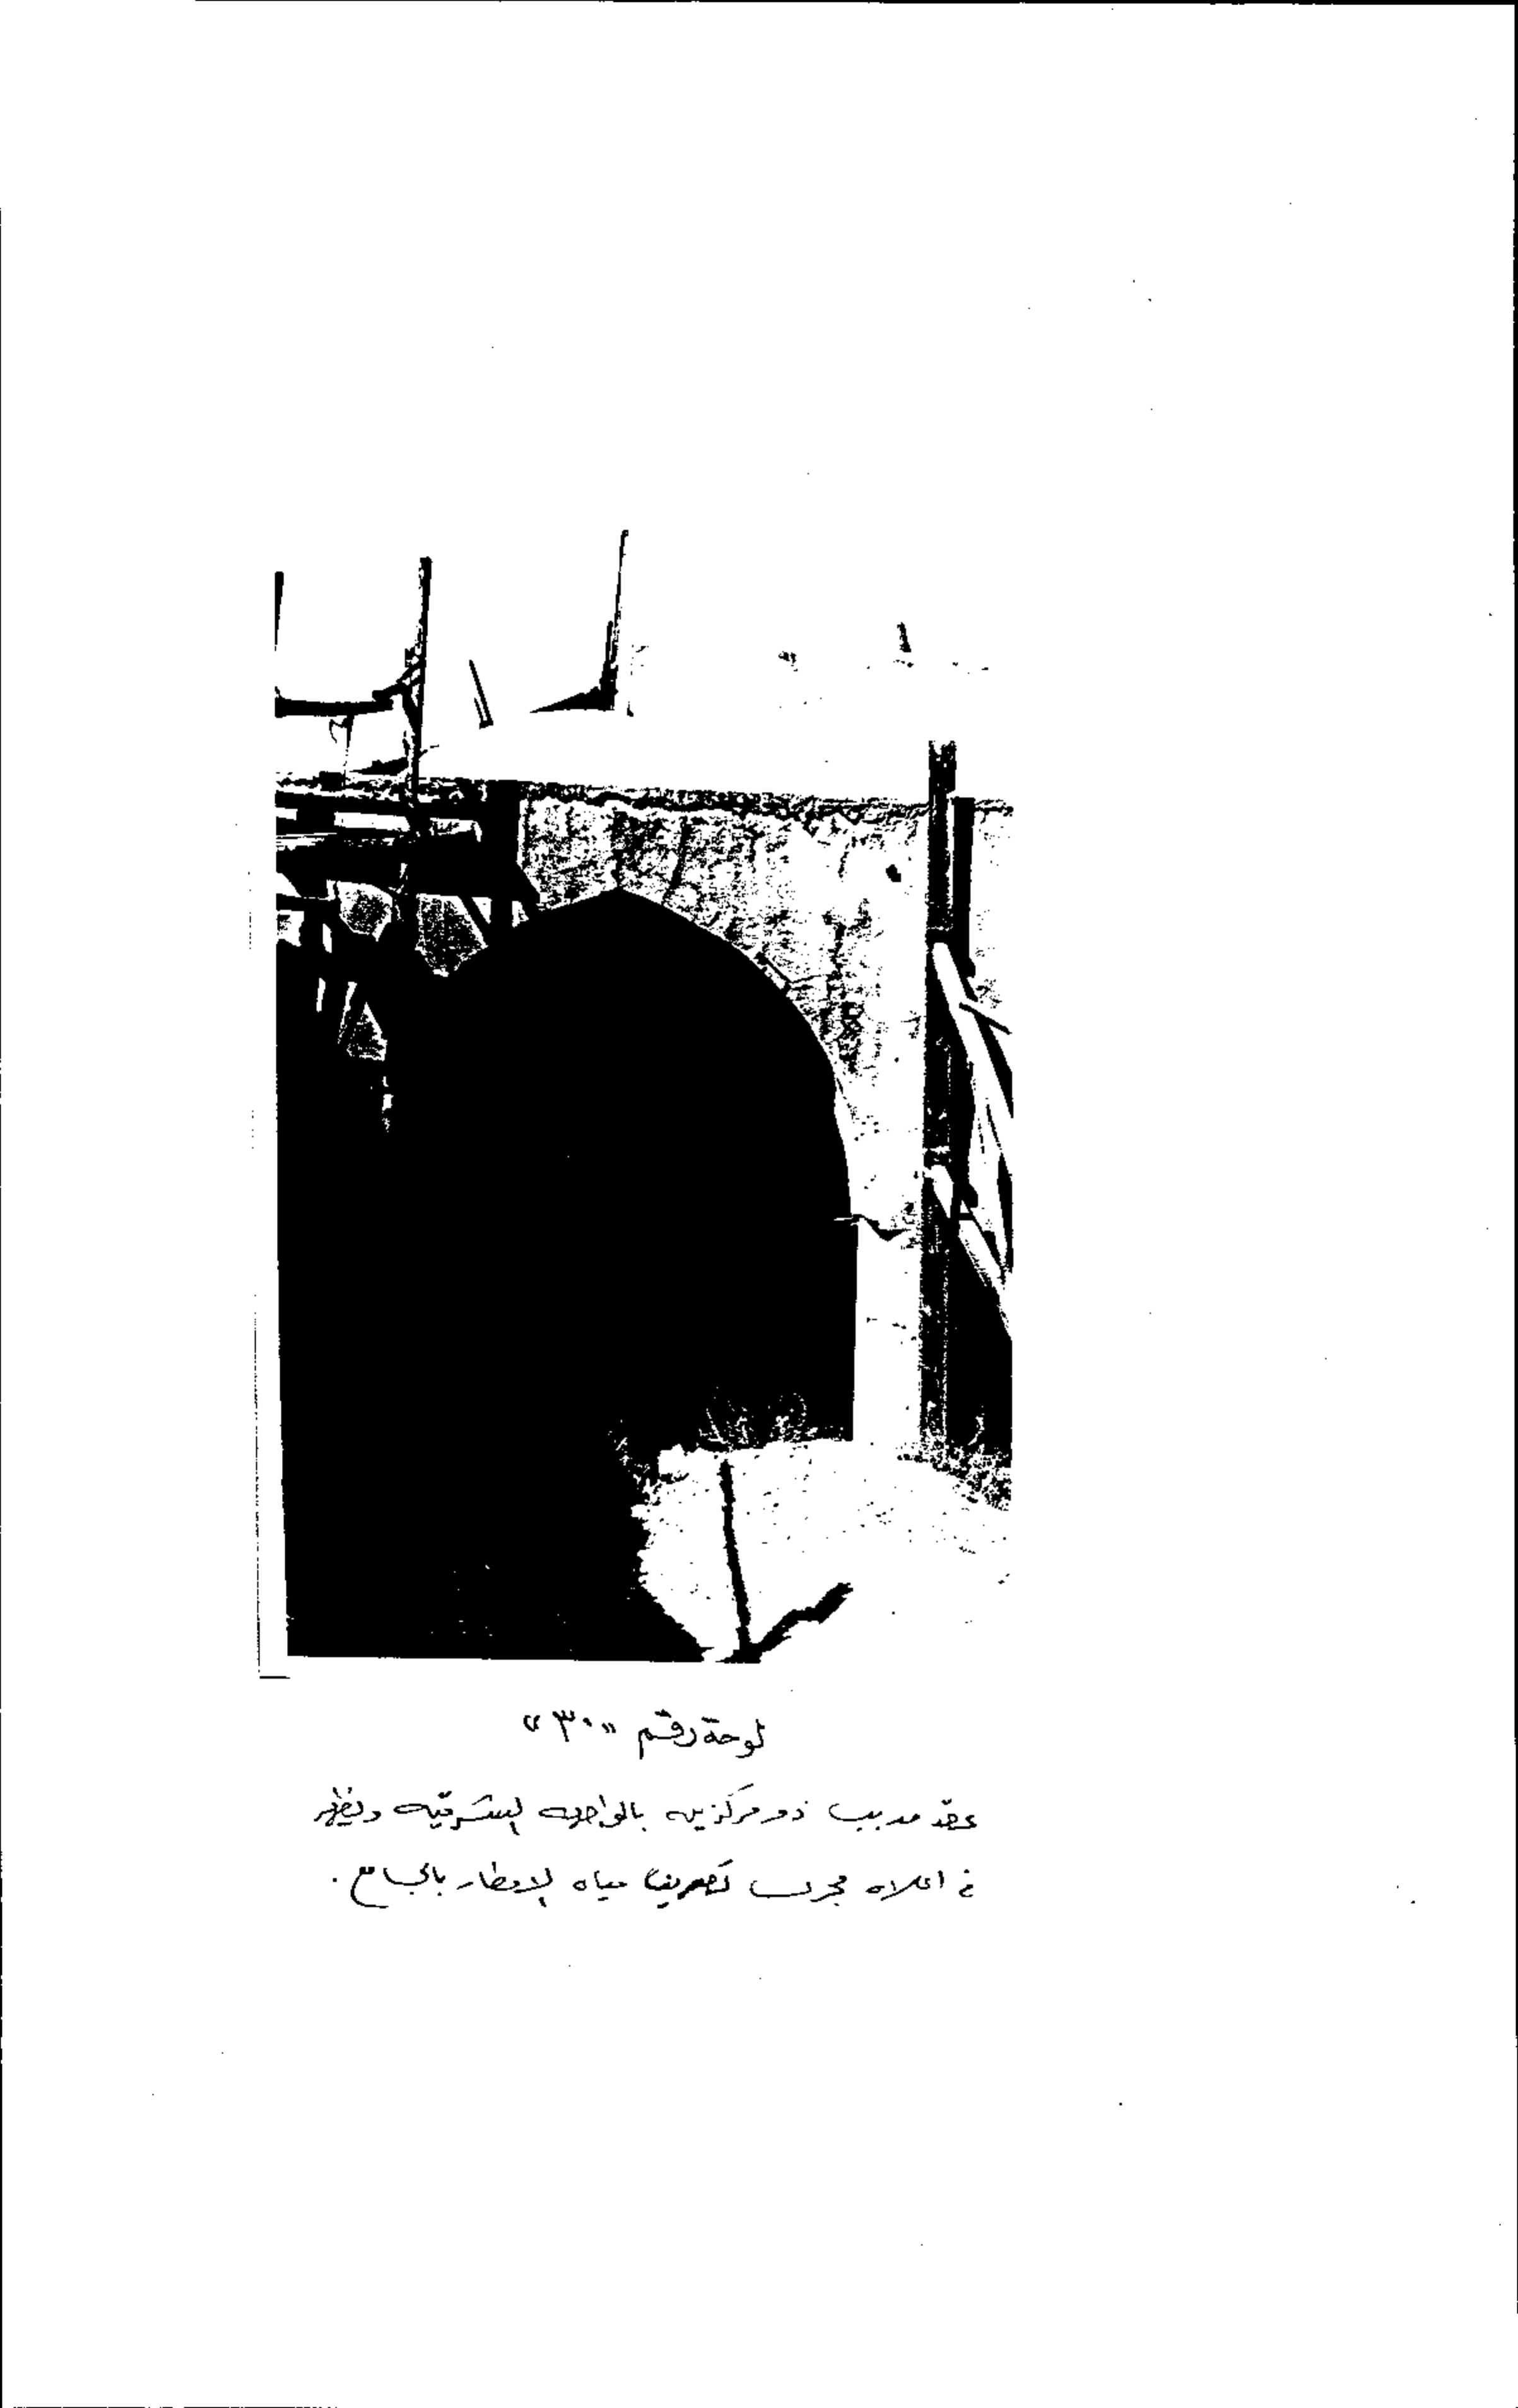 لوحة رقم «٣٠»
عقد مدبب ذو مركزين بالواجهه الشرقيه ويظهر
في اعلاه مجرى تصريف مياه الامطار بالجامع .